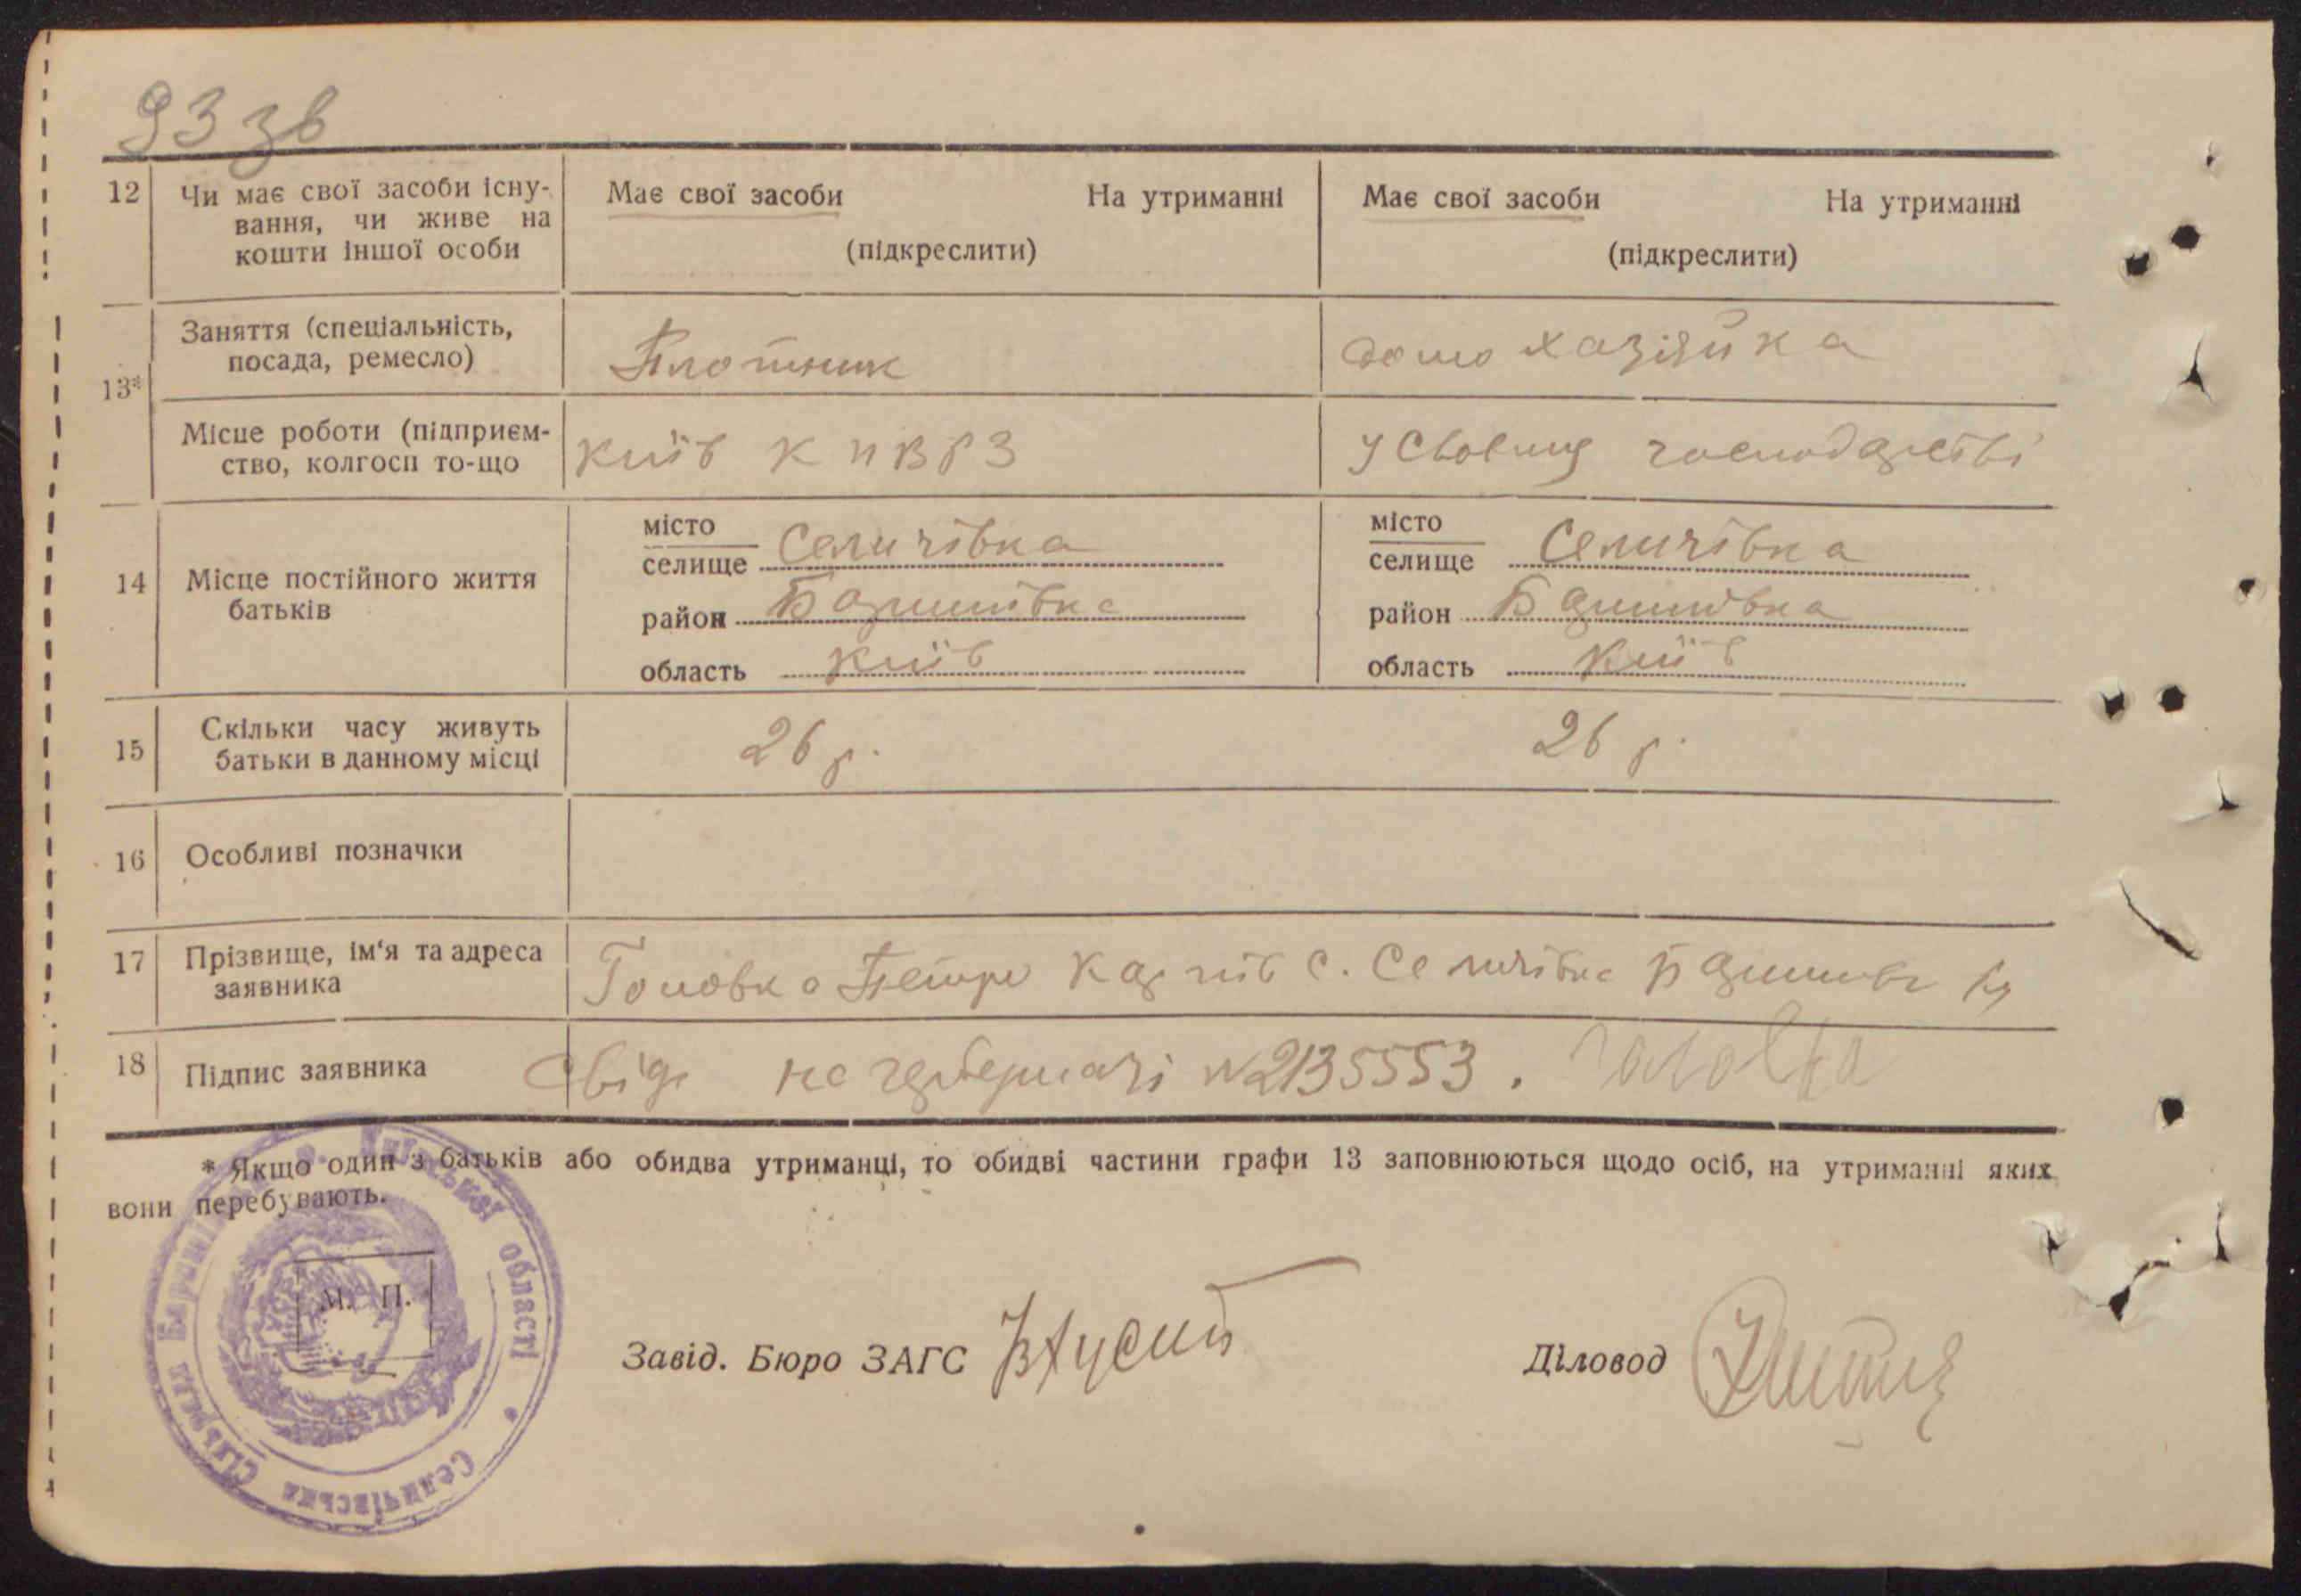 93 зв
12 Чи має свої засоби існу-
вання, чи живе на
кошти іншої особи
Має свої засоби На утриманні
(підкреслити)
Має свої засоби На утриманні
(підкреслити)
13*
Заняття (спеціальність,
посада, ремесло)
Плотник
домо хазяйка
Місце роботи (підприєм-
ство, колгосп то-що
Київ К П В Р З
у своєму господарстві
14 Місце постійного життя
батьків
місто
селище Селичівка
район Баришівка
область Київ
місто
селище Селичівка
район Баришівка
область Київ
15 Скільки часу живуть
батьки в данному місці
26 р.
26 р.
16 Особливі позначки
17 Прізвище, ім'я та адреса
заявника
Головко Петро с. Селичівка
18 Підпис заявника
Свід на № 2135553.
* Якщо один з батьків або обидва утриманці, то обидві частини графи 13 заповнюються щодо осіб, на утриманні яких
вони перебувають.
М. П.
Завід. Бюро ЗАГС
Діловод
Селичівська сільрада Київської області